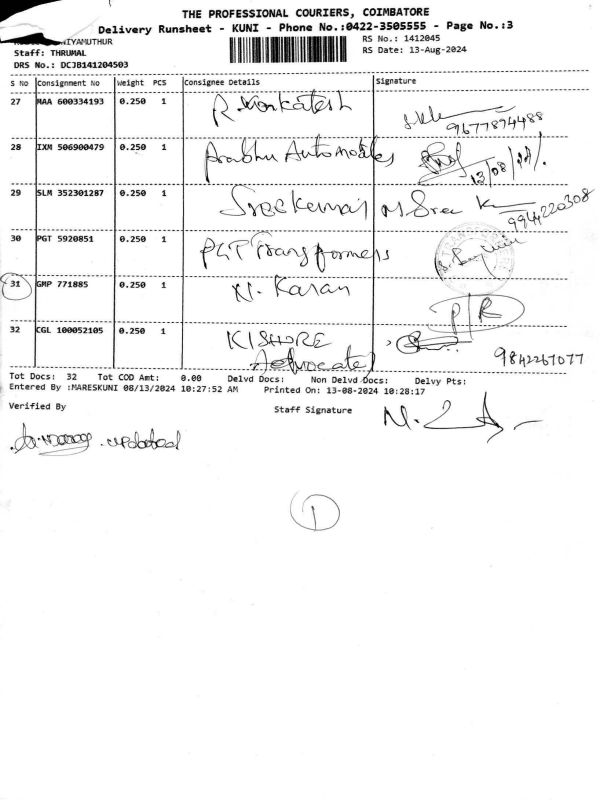 THE PROFESSIONAL COURIERS, COIMBATORE
Delivery Runsheet - KUNI - Phone No.:0422-3505555 - Page No.:3
RS No.: 1412045
Staff: THRUMAL
RS Date: 13-Aug-2024
DRS No.: DCJB141204503
S No Consignment No Weight PCS Consignee Details Signature
27 MAA 600334193 0.250 1 R. Venkatesh
9677894488
28 IXM 506900479 0.250 1 Prabhu Automobiles
13/08/24
29 SLM 352301287 0.250 1 Sreekumar M Sree K
9944220308
30 PGT 5920851 0.250 1 PGT Transformers
31 GMP 771885 0.250 1 N. Karan P/R
32 CGL 100052105 0.250 1 KISHORE
Advocate
9842267077
Tot Docs: 32 Tot COD Amt: 0.00 Delvd Docs: Non Delvd Docs: Delvy Pts:
Entered By :MARESKUNI 08/13/2024 10:27:52 AM Printed On: 13-08-2024 10:28:17
Verified By Staff Signature
updated
1